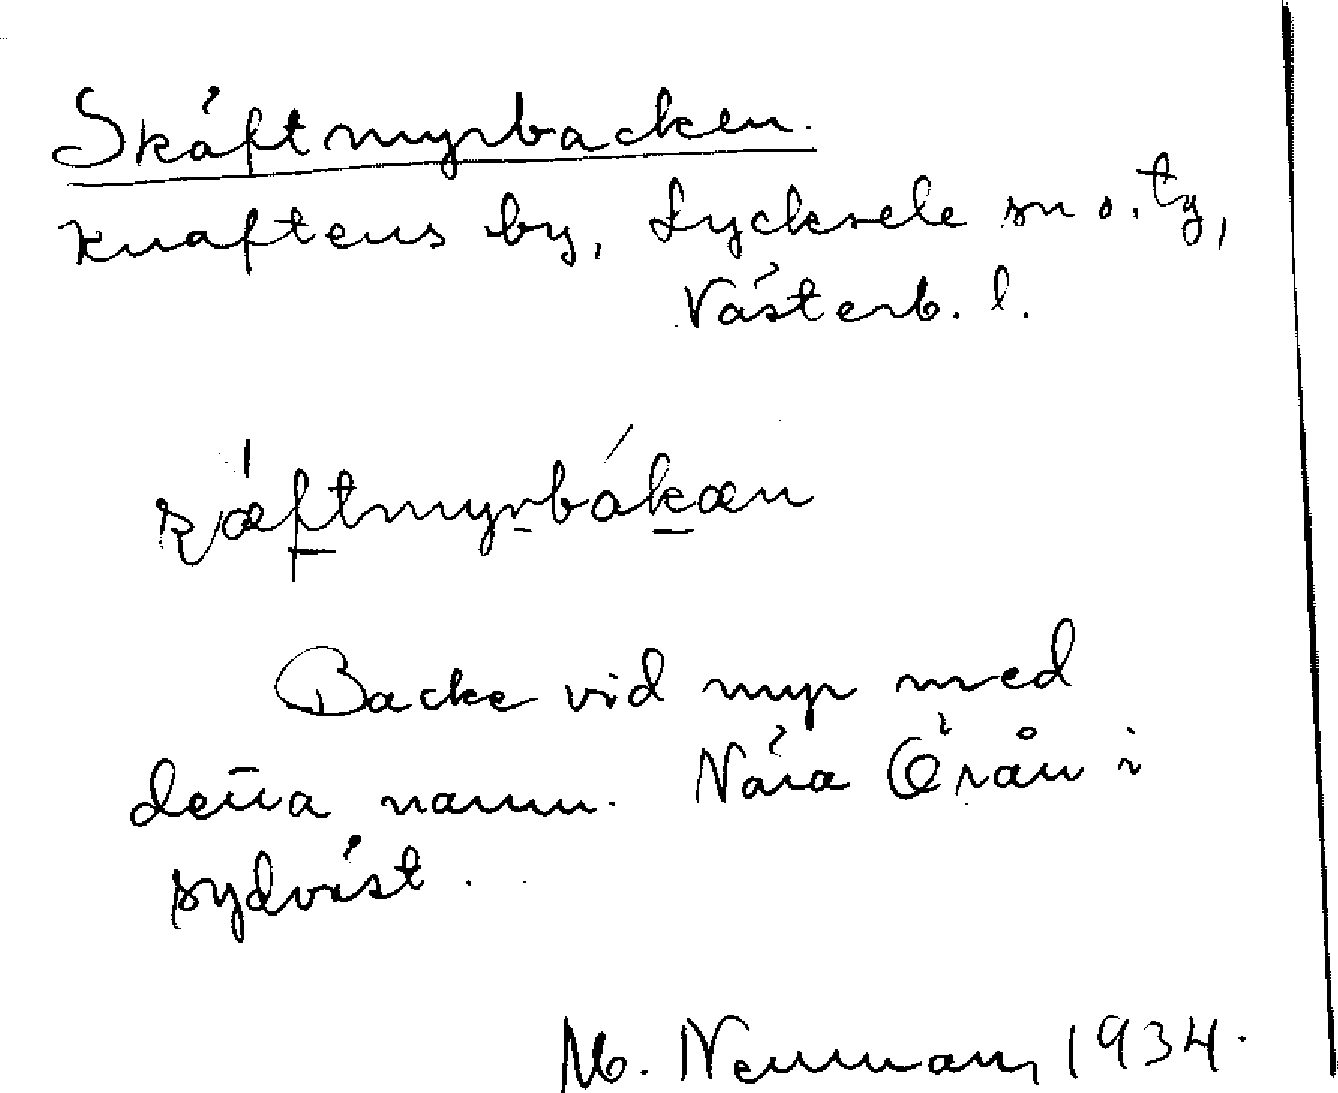 Skäftmyrbacken.
Knaftens by, Lycksele sn o. tg,
Västerb. l.
ʂæftmyrbákæn
Backe vid myr med
denna namn. Nära Örån i
sydväst.
M. Neuman, 1934.